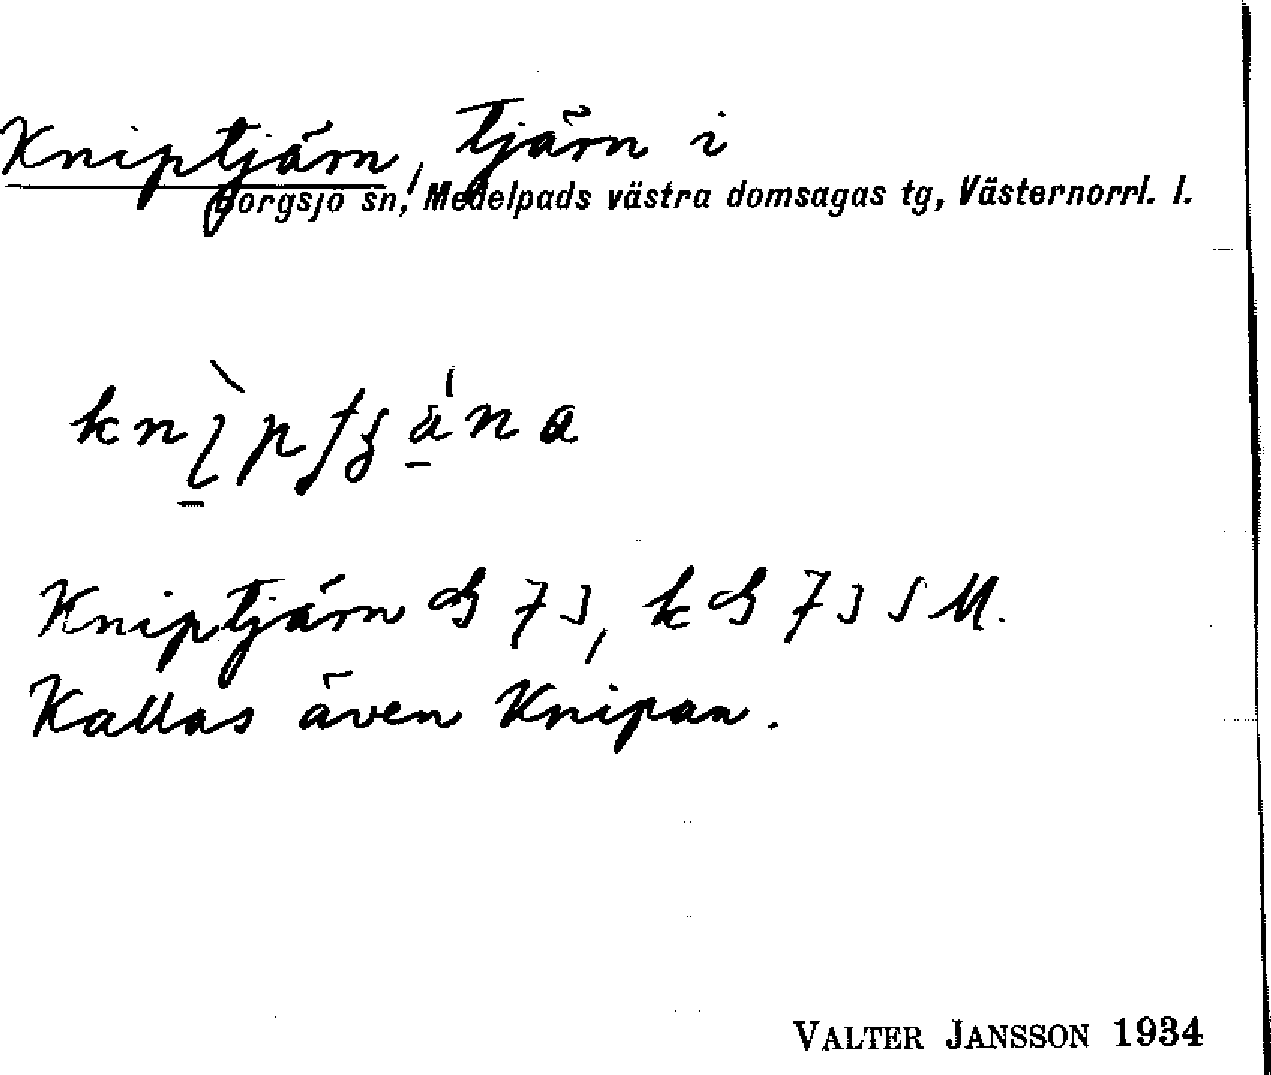 Kniptjärn, Tjärn i
Borgsjö sn, Medelpads västra domsagas tg, Västernorrl. l.
Kniptjärn
Kallas även Knipan.
VALTER JANSSON 1934